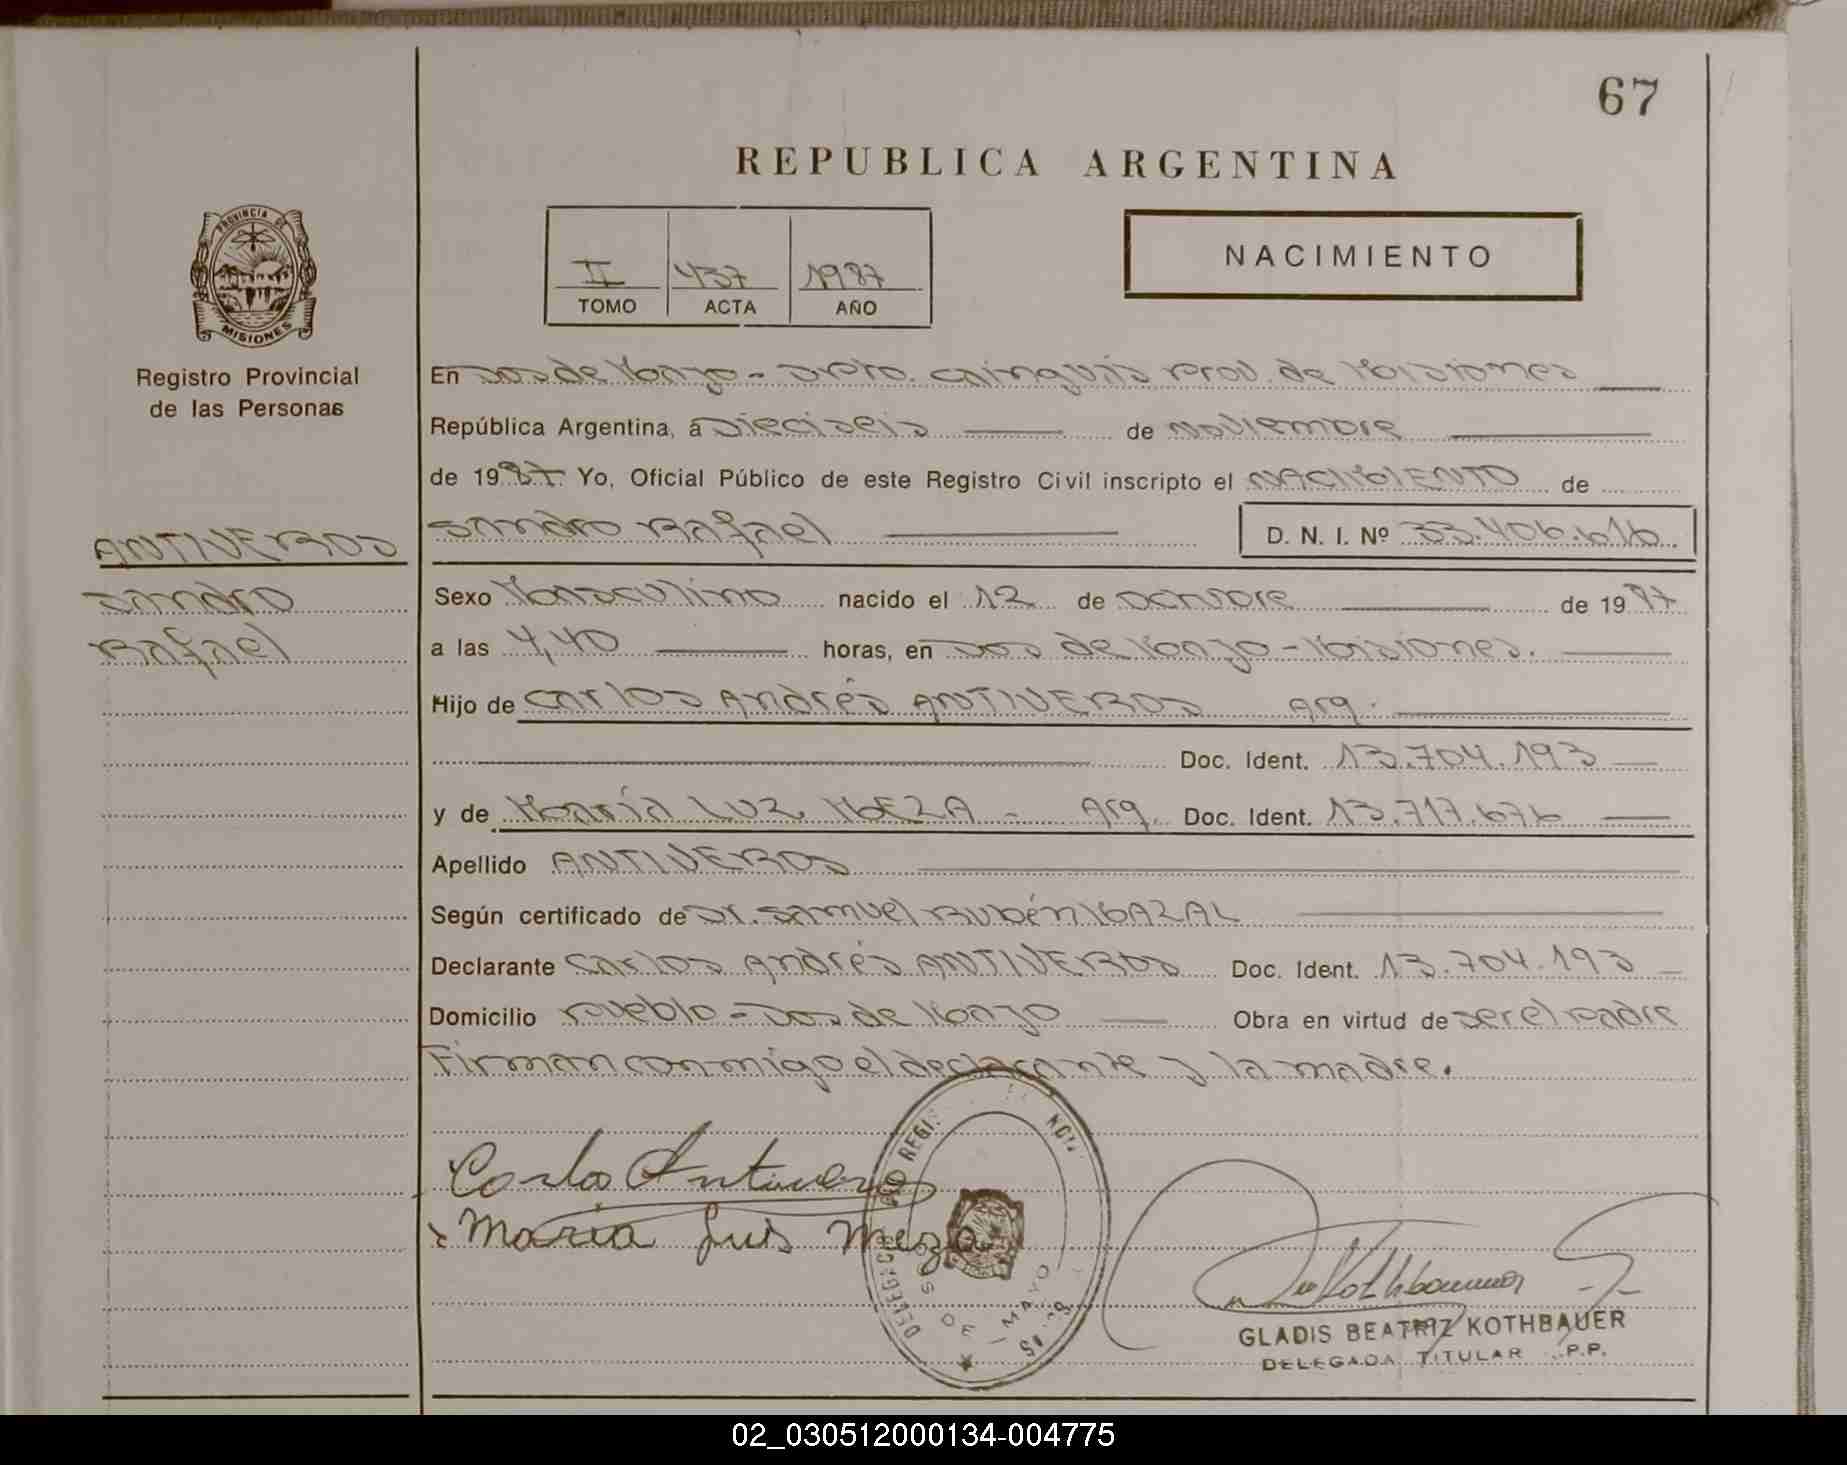 67
REPUBLICA ARGENTINA
PROVINCIA DE
MISIONES
Registro Provincial
de las Personas
II 437 1987
TOMO ACTA AÑO
NACIMIENTO
En Dos de Mayo - Dpto. Cainguás Prov. de Misiones
República Argentina, á Dieciseis de Noviembre
de 1987 Yo, Oficial Público de este Registro Civil inscripto el NACIMIENTO de
ANTIVEROS
Sandro
Rafael
Sandro Rafael D. N. I. Nº 33.406.616
Sexo Masculino nacido el 12 de Octubre de 1987
a las 4,40 horas, en Dos de Mayo - Misiones.
Hijo de Carlos Andrés ANTIVEROS Arg.
Doc. Ident. 13.704.193
y de María Luz MEZA - Arg. Doc. Ident. 13.717.676
Apellido ANTIVEROS
Según certificado de Dr. Samuel Rubén MAZAL
Declarante Carlos Andrés ANTIVEROS Doc. Ident. 13.704.193
Domicilio Pueblo - Dos de Mayo Obra en virtud de ser el padre
Firman conmigo el declarante y la madre.
Carlos Antiveros
Maria Lus Meza
DE MAYO
GLADIS BEATRIZ KOTHBAUER
DELEGADA TITULAR P.P.
02_030512000134-004775